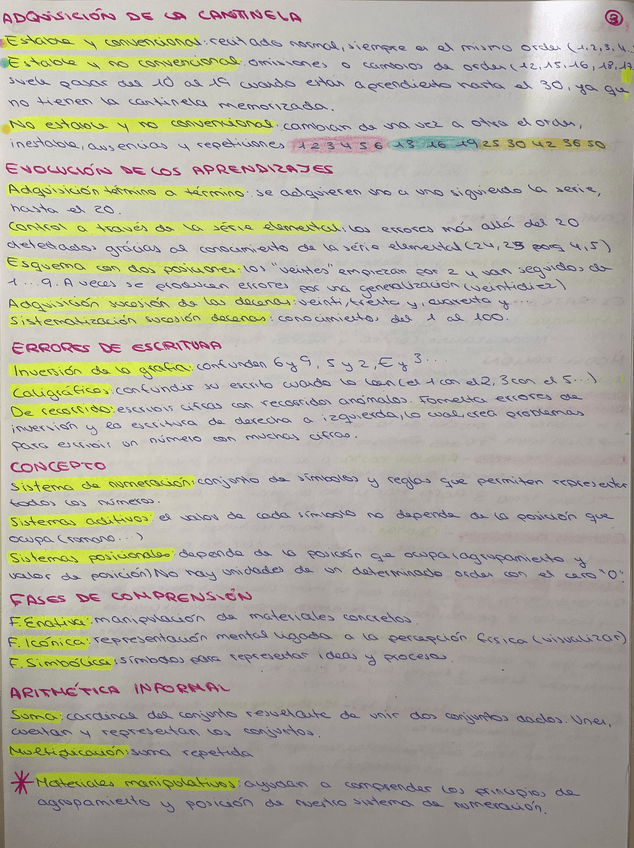 ADQUISICIÓN DE LA CANTINELA
3
Estable y convencional: recitado normal, siempre en el mismo orden (1, 2, 3, 4,
Estable y no convencional: omisiones o cambios de orden (12, 15, 16, 18, 17
suele pasar del 10 al 19 cuando están aprendiendo hasta el 30, ya que
no tienen la cantinela memorizada.
No estable y no convencional: cambian de una vez a otra el orden,
inestable, ausencias y repeticiones 1 2 3 4 5 6 13 16 19 25 30 42 36 50
EVOLUCIÓN DE LOS APRENDIZAJES
Adquisición término a término: se adquieren uno a uno siguiendo la serie,
hasta el 20.
Control a través de la serie elemental: los errores más allá del 20
detectados gracias al conocimiento de la serie elemental (24, 25 por 4, 5)
Esquema con dos posiciones: los "veintes" empiezan por 2 y van seguidos de
1 ... 9. A veces se producen errores por una generalización (veintidiez)
Adquisición sucesión de las decenas: veinti, treinta y, cuarenta y ...
Sistematización sucesión decenas: conocimientos del 1 al 100.
ERRORES DE ESCRITURA
Inversión de la grafía: confunden 6 y 9, 5 y 2, E y 3...
Caligráficos: confundir su escrito cuando lo leen (el 1 con el 2, 3 con el 5...)
De recorrido: escribir cifras con recorridos anómalos. Fomenta errores de
inversión y la escritura de derecha a izquierda, lo cual crea problemas
para escribir un número con muchas cifras.
CONCEPTO
Sistema de numeración: conjunto de símbolos y reglas que permiten representar
todos los números.
Sistemas aditivos: el valor de cada símbolo no depende de la posición que
ocupa (romano...)
Sistemas posicionales: depende de la posición que ocupa (agrupamiento y
valor de posición) No hay unidades de un determinado orden con el cero "0".
FASES DE COMPRENSIÓN
F. Enativa: manipulación de materiales concretos.
F. Icónica: representación mental ligada a la percepción física (visualizar)
F. Simbólica: símbolos para representar ideas y procesos.
ARITMÉTICA INFORMAL
Suma: cardinal del conjunto resultante de unir dos conjuntos dados. Unen,
cuentan y representan los conjuntos.
Multiplicación: suma repetida
* Materiales manipulativos: ayudan a comprender los principios de
agrupamiento y posición de nuestro sistema de numeración.